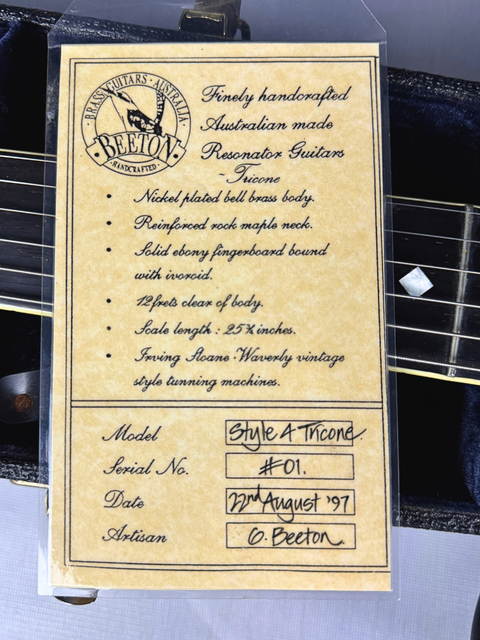 BRASS GUITARS · AUSTRALIA
BEETON
· HANDCRAFTED ·
Finely handcrafted
Australian made
Resonator Guitars
~ Tricone
• Nickel plated bell brass body.
• Reinforced rock maple neck.
• Solid ebony fingerboard bound
with ivoroid.
• 12 frets clear of body.
• Scale length : 25¾ inches.
• Irving Sloane · Waverly vintage
style tunning machines.
Model Style 4 Tricone.
Serial No. #01.
Date 22nd August '97
Artisan G. Beeton.